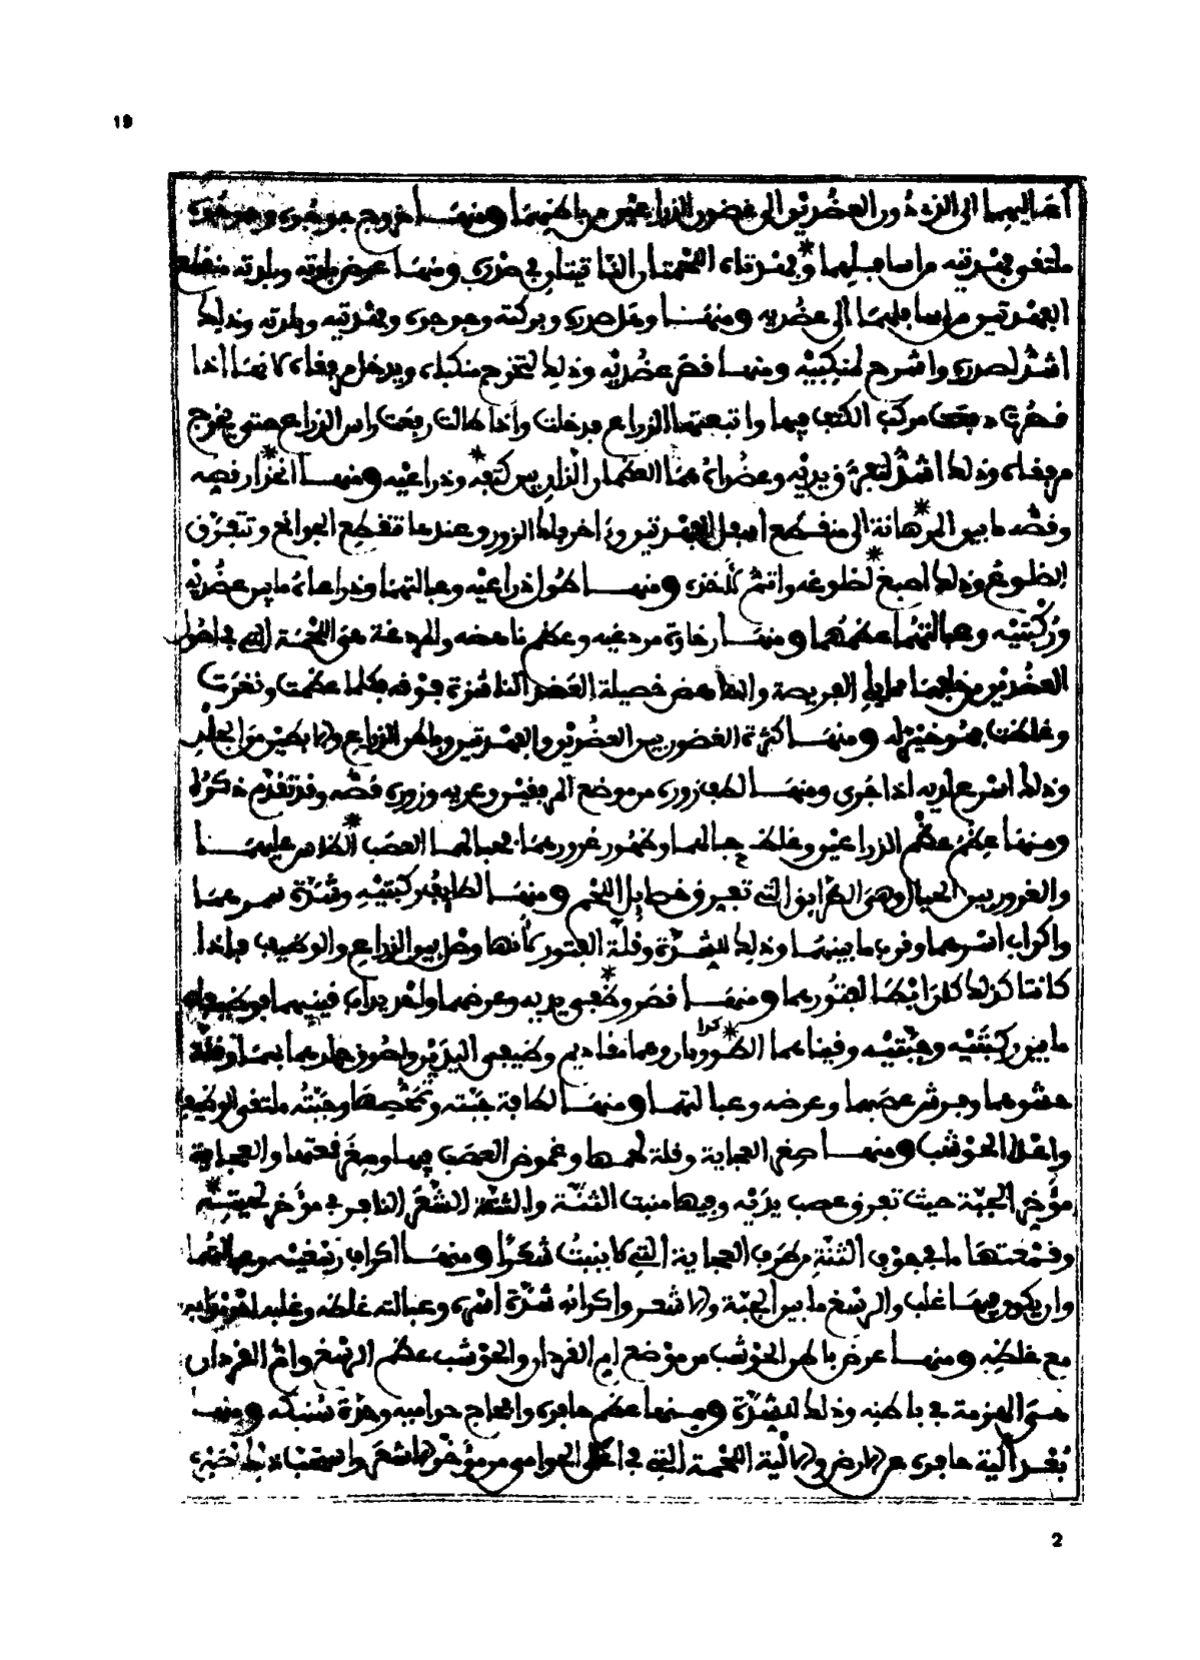 19
أعاليهما الى الزور دون العضدين الى غضون الذراعين من باطنهما ومنها خروج جوجوه وجوجوه
ملتقى فهدتيه من اسافلهما وفهدتاه اللحمتان الناتيتان في صدره ومنها عرض بلدته وبلدته منقطع
الفهدتين من اسافلهما الى عضديه ومنها وصل صدره وبركته وجوجوه وفهدتيه وبلدته وذلك
اشد لصدره واشرح لمنكبيه ومنها قصر عضديه وذلك لتخرج منكباه ويدخل مرفقاه لانهما اذا
قصرتا دفعتا مركب الكتف فيها واتبعتهما الذراع فدخلت واذا طالت رفعت راس الذراع حتى يخرج
مرفقاه وذلك اشد لتفرق يديه وعضداه هما العظمان الذان بين كتفه وذراعيه ومنها اغزار قصه
وقصه ما بين الرهابة الى منقطع اسفل الفهدتين وذا خر ذلك الزور وعندما تنقطع الجوانح وتتفرق
الضلوع وذلك اصبغ لضلوعه واتم لاخذه ومنها طول ذراعيه وعبالتهما وذراعاه ما بين عضديه
وركبتيه وعبالتهما عظمهما ومنها رخاوة مردغيه وعظم ناهضه والمردغة هي اللحمة التي في اصول
العضدين من خلفهما مما يلي الفريصة والناهض خصيلة العضد الناشزة فوقه فكلما عظمت ونغرت
وغلظت فهو خير له ومنها كثرة الغضون بين العضدين والفهدتين وباطن الذراع والابطين من الجلد
وذلك اسرع ليديه اذا جرى ومنها لطف زوره من موضع المرفقين وعريه وزوره قصه وقد تقدم ذكره
ومنها عظم عظم الذراعين وغلظ حبالهما وظهور غرورهما فحبالهما العصب الظاهر عليهما
والغرور بين الحبال وهي الطرايق التي تفرق خصايل اللحم ومنها لطافة ركبتيه وشدة سمرهما
واكراب اسرهما وقرب ما بينهما وذلك للشدة وقلة الفتور كأنها وصل بين الذراع والوظيف فاذا
كانتا كذلك كان ابطا لفتورهما ومنها قصر وظيفي يديه وعرضهما واحديداب قينيهما فوظيفاه
ما بين ركبتيه وجبتيه وقيناهما الظنبوبان وهما مقاديم وظيفي اليدين ولصوق جلدهما بهما وقلة
حشوهما وفرش عصبهما وعرضه وعبالتهما ومنها لطافة جبته وتمحصها وجبته ملتقى الوظيف
واعلا الحوشب ومنها صغر العجاية وقلة لحمها وغموض العصب فيها وصغر قمعتها والعجاية
مؤخر الجبة حيث تفرق عصب يديه وفيها منبت الثنة والثنة الشعر النابت في مؤخر لحيتيه
وقمعتها ما في جوف الثنة من طرف العجاية التي لا ينبت شعرا ومنها اكراب رسغيه وعبالتهما
وان يكون فيهما غلب والرسغ ما بين الجبة والاشعر واكرابه شدة اسره وعبالته غلظه وغلبه
مع غلظه ومنها عرض باطن الحوشب من موضع ام القردان والحوشب عظم الرسغ وام القردان
هي الهزمة في باطنه وذلك للشدة ومنها عظم حافره وافجاج حواميه وحدة سنبكه ومنها
بعد ألية حافره عن الارض والالية اللحمة التي في اعلى الحوامي من مؤخر الاشعر
كذا
2